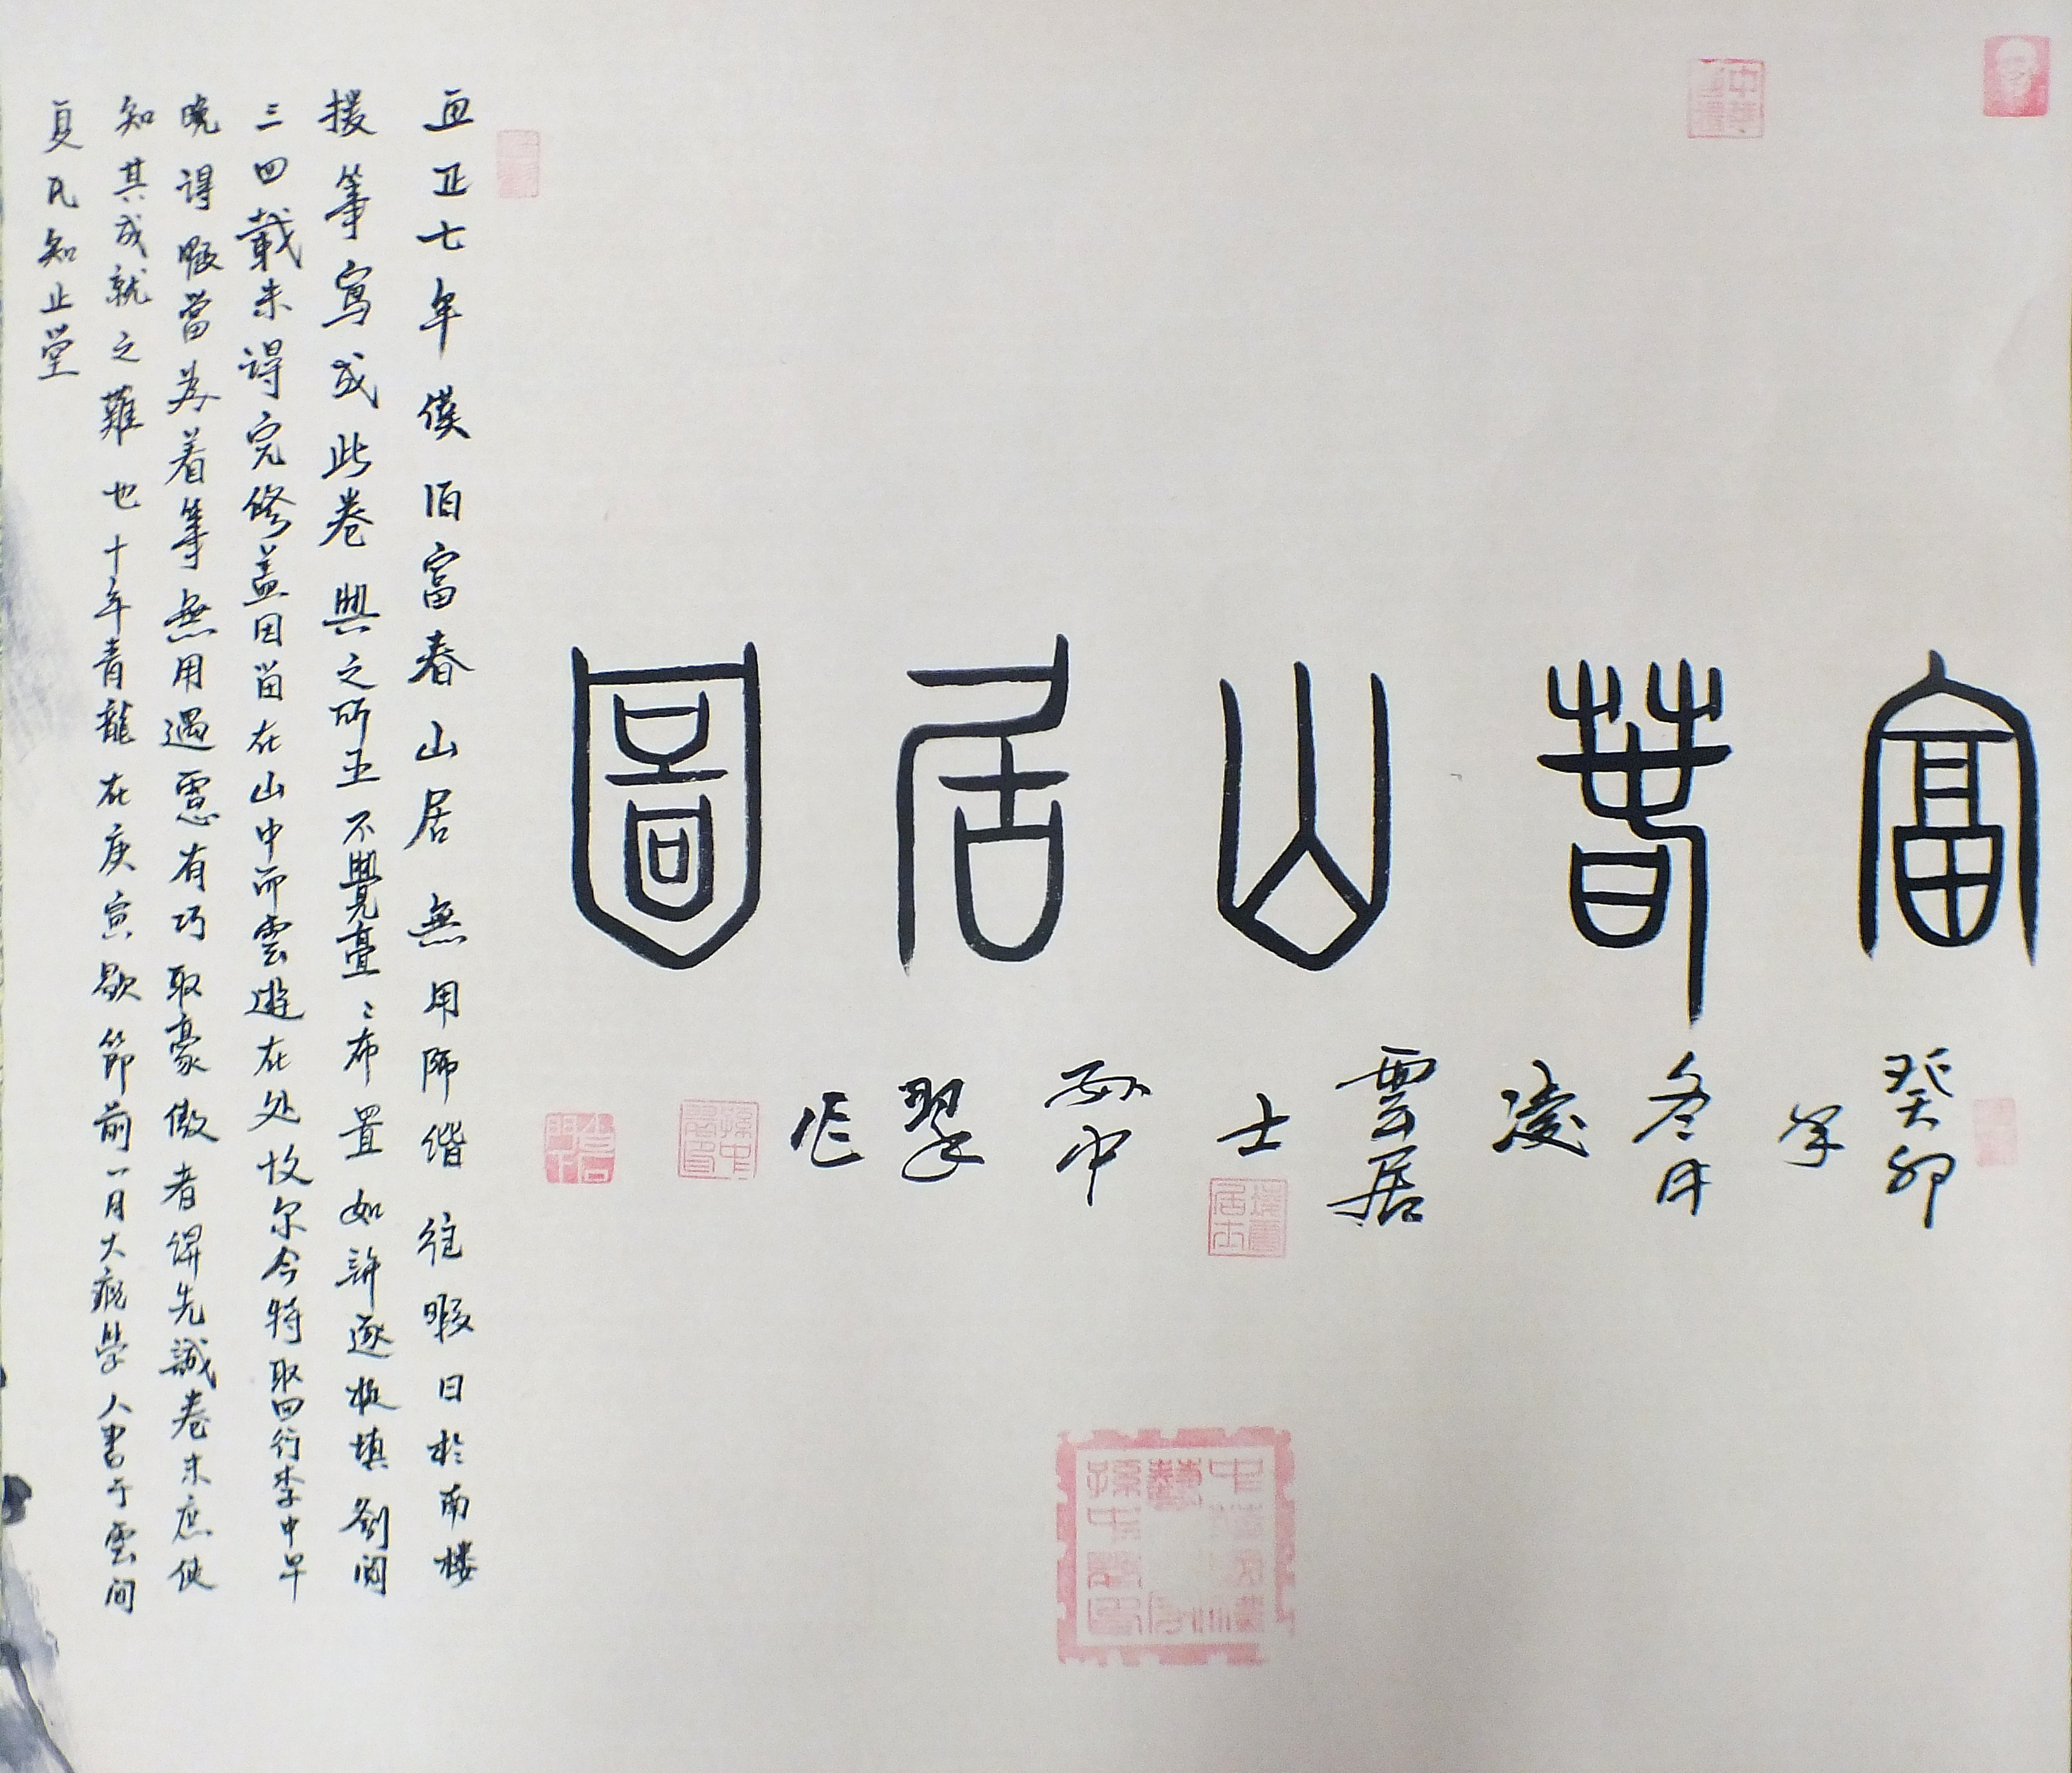 富春山居圖
癸卯
年
冬月
凌
雲居
士
孫中
翠
作
至正七年僕歸富春山居無用師偕往暇日於南樓
援筆寫成此卷興之所至不覺亹亹布置如許逐旋填劄閱
三四載未得完備蓋因留在山中而雲遊在处故尔今特取回行李中早
晚得暇當為着筆無用過慮有巧取豪傲者俾先識卷末庶使
知其成就之難也十年青龍在庚寅歜節前一月大癡學人書于雲間
夏氏知止堂